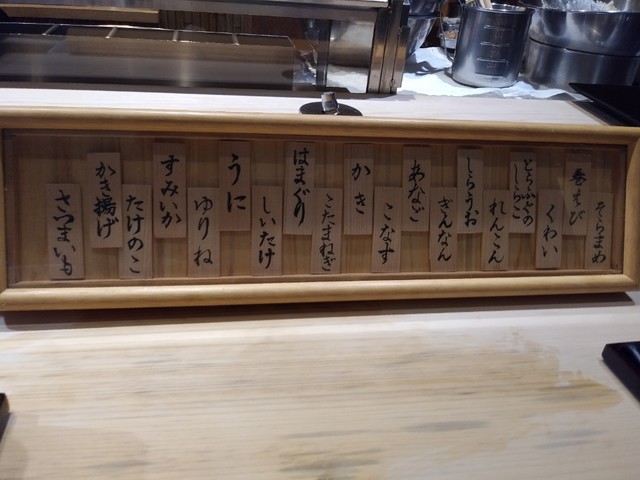 そらまめ
巻えび
くわい
とらふぐの
しらこ
れんこん
しらうお
ぎんなん
あなご
こなす
かき
こたまねぎ
はまぐり
しいたけ
うに
ゆりね
すみいか
たけのこ
かき揚げ
さつまいも